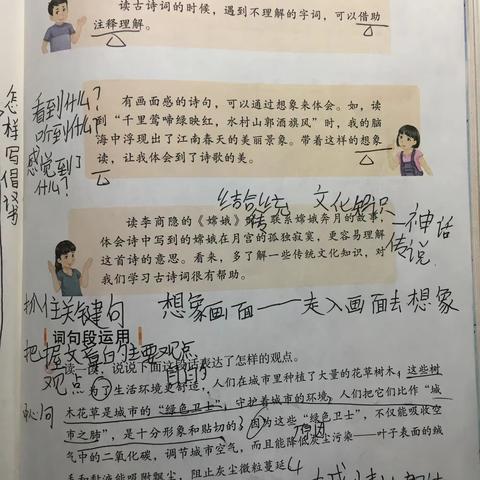 读古诗词的时候，遇到不理解的字词，可以借助
注释理解。
怎样写倡议书
看到什么？
听到什么？
感觉到了
什么？
有画面感的诗句，可以通过想象来体会。如，读
到“千里莺啼绿映红，水村山郭酒旗风”时，我的脑
海中浮现出了江南春天的美丽景象。带着这样的想象
读，让我体会到了诗歌的美。
结合传统 文化知识
读李商隐的《嫦娥》 联系嫦娥奔月的故事，
体会诗中写到的嫦娥在月宫的孤独寂寞，更容易理解
这首诗的意思。看来，多了解一些传统文化知识，对
我们学习古诗词很有帮助。
神话
传说
抓住关键句
想象画面——走入画面去想象
词句段运用
把握文章的主要观点
读一段，说说下面这段话表达了怎样的观点。
观点
目的
为了生活环境更舒适，人们在城市里种植了大量的花草树木，这些树
中心句
木花草是城市的“绿色卫士”，守护着城市的环境，人们把它们比作“城
市之肺”，是十分形象和贴切的。因为这些“绿色卫士”，不仅能吸收空
原因
气中的二氧化碳，调节城市空气，而且能降低灰尘污染——叶子表面的绒
毛和黏液能吸附飘尘，阻止灰尘微粒蔓延